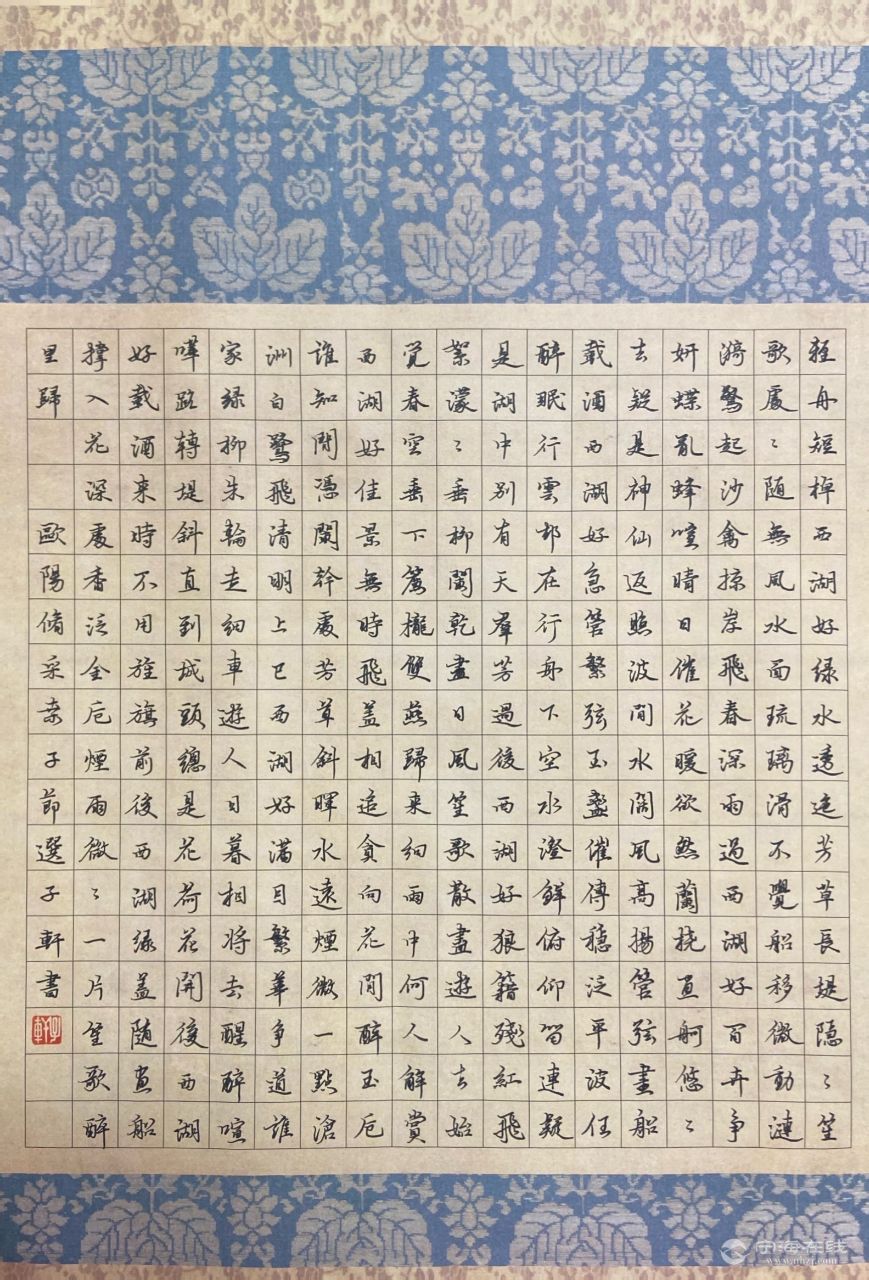 輕舟短棹西湖好綠水逶迤芳草長堤隱〻笙
歌處〻随無風水面琉璃滑不覺船移微動漣
漪驚起沙禽掠岸飛春深雨過西湖好百卉争
妍蝶亂蜂喧晴日催花暖欲然蘭橈畫舸悠〻
去疑是神仙返照波間水闊風高揚管弦畫船
載酒西湖好急管繁弦玉盞催傳穩泛平波任
醉眠行雲却在行舟下空水澄鮮俯仰留連疑
是湖中别有天羣芳過後西湖好狼籍殘紅飛
絮濛〻垂柳闌乾盡日風笙歌散盡遊人去始
覺春空垂下簾櫳雙燕歸来細雨中何人解賞
西湖好佳景無時飛蓋相追貪向花間醉玉卮
誰知閒憑闌幹處芳草斜暉水遠煙微一點滄
洲白鷺飛清明上巳西湖好滿目繁華争道誰
家綠柳朱輪走細車遊人日暮相將去醒醉喧
嘩路轉堤斜直到城頭總是花荷花開後西湖
好載酒来時不用旌旗前後西湖綠蓋随畫船
撑入花深處香泛金卮煙雨微〻一片笙歌醉
里歸 歐陽脩采桑子節選子軒書
子軒
宁海在线